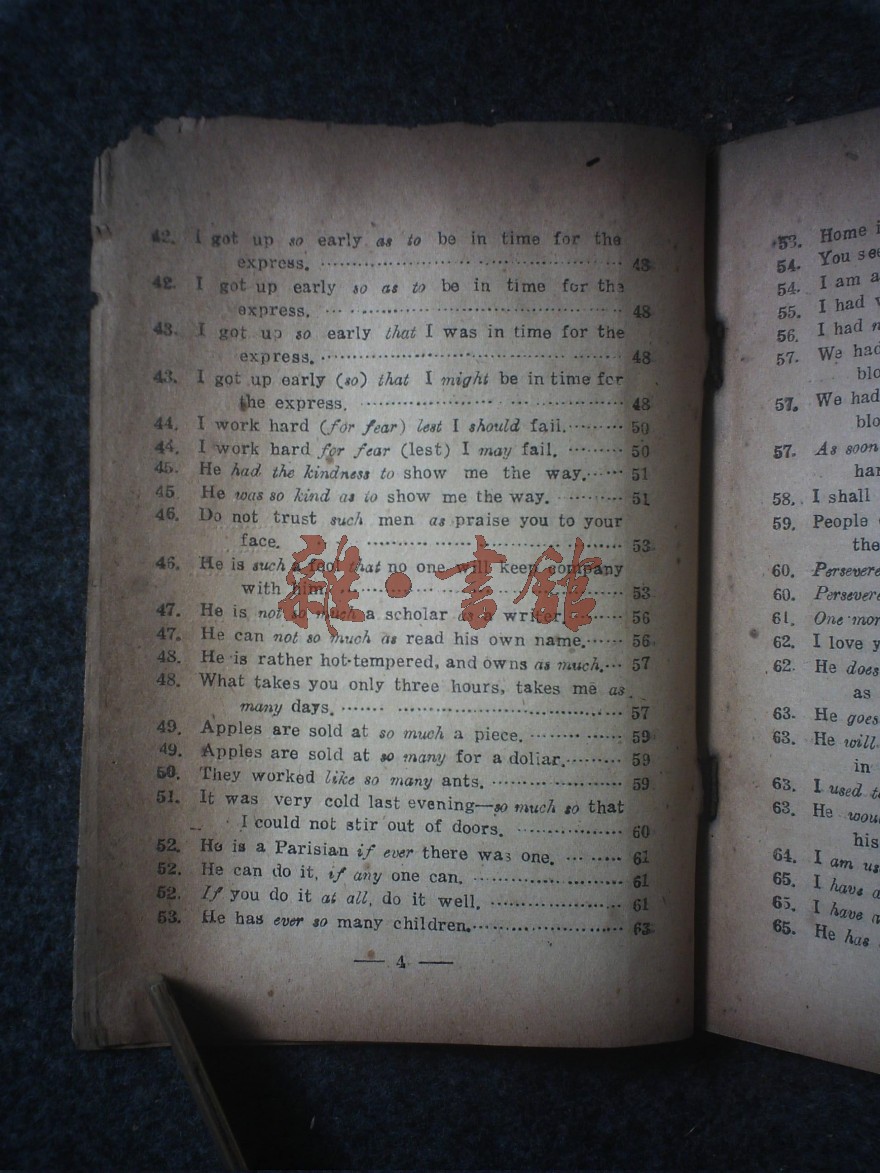 42. I got up so early as to be in time for the
express. 48
42. I got up early so as to be in time for the
express. 48
43. I got up so early that I was in time for the
express. 48
43. I got up early (so) that I might be in time for
the express. 48
44. I work hard (for fear) lest I should fail. 50
44. I work hard for fear (lest) I may fail. 50
45. He had the kindness to show me the way. 51
45 He was so kind as to show me the way. 51
46. Do not trust such men as praise you to your
face. 53
46. He is such a fool that no one will keep company
with him. 53
47. He is not so much a scholar as a writer. 56
47. He can not so much as read his own name. 56
48. He is rather hot-tempered, and owns as much. 57
48. What takes you only three hours, takes me as
many days. 57
49. Apples are sold at so much a piece. 59
49. Apples are sold at so many for a dollar. 59
50. They worked like so many ants. 59
51. It was very cold last evening—so much so that
I could not stir out of doors. 60
52. He is a Parisian if ever there was one. 61
52. He can do it, if any one can. 61
52. If you do it at all, do it well. 61
53. He has ever so many children. 63
— 4 —
雜·書館
53. Home
54. You see
54. I am a
55. I had
56. I had
57. We had
blo
57. We had
blo
57. As soon
har
58. I shall
59. People
the
60. Persevere
60. Persevere
61. One mor
62. I love y
62. He does
as
63. He goes
63. He will
in
63. I used to
63. He woul
his
64. I am us
65. I have a
65. I have a
65. He has